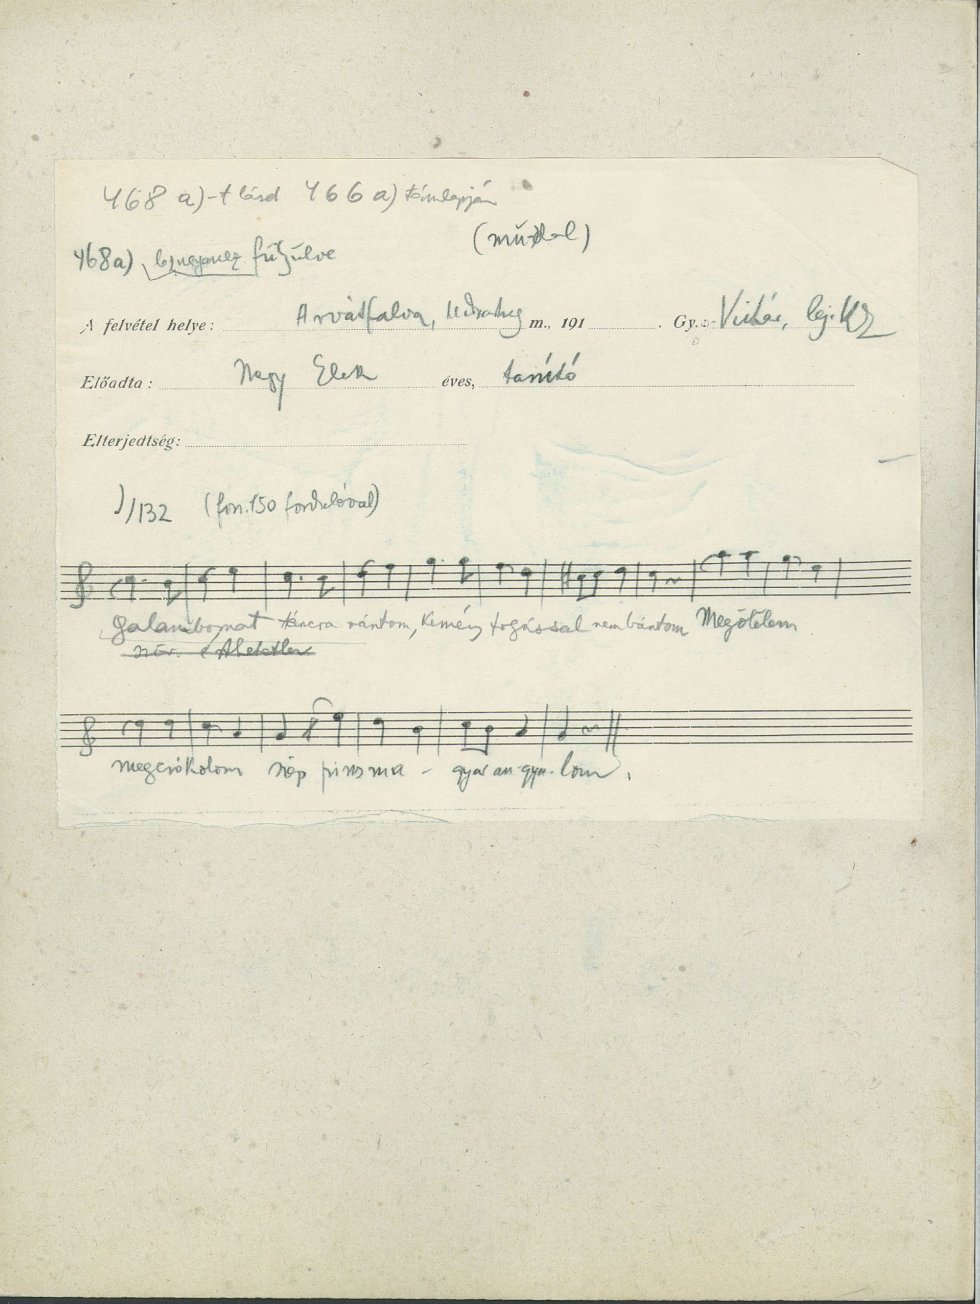 468 a)-t lásd 466 a) támlapján
(műdal)
468a) ugyanez fütyülve
A felvétel helye: Arvátfalva, Udvarhely m., 191 . Gy.: Vikár, lej. K Z
Előadta: Nagy Elek éves, tanító
Elterjedtség:
/132 (fon. 150 fordulóval)
Galambomat táncra rántom, Kemény fogással nem bántom Megölelem
megcsókolom szép piros ma-gyar an-gya-lom.